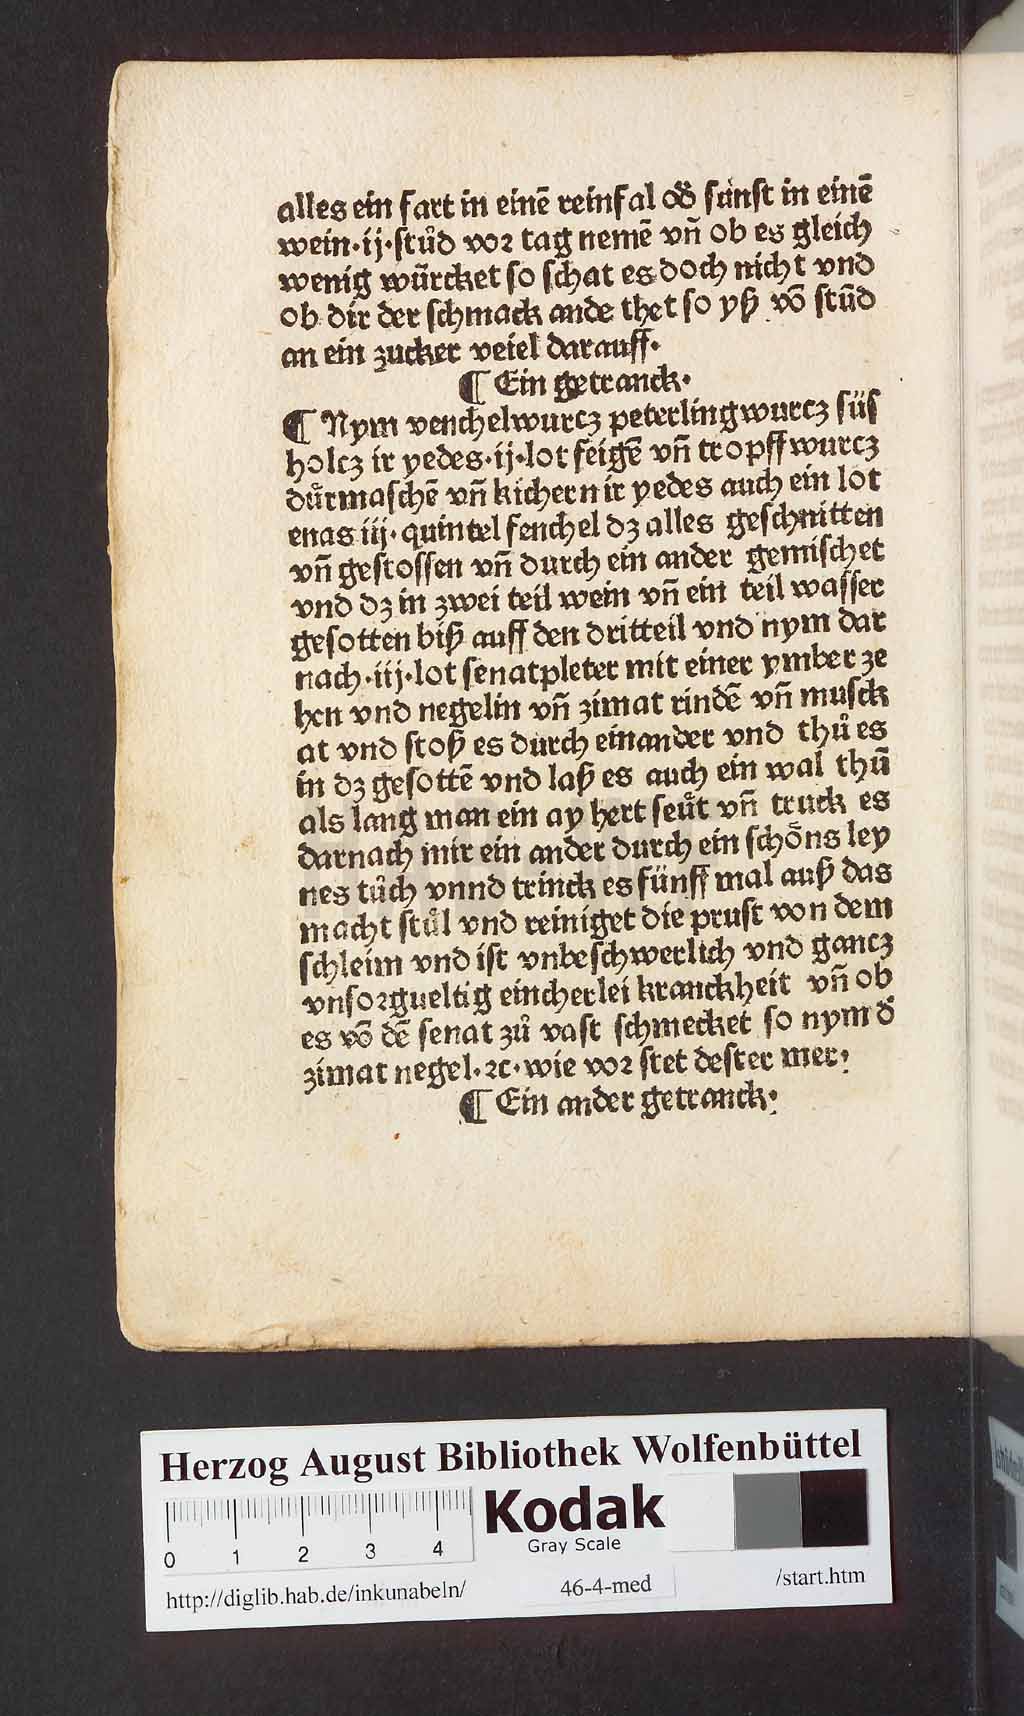 alles ein fart in einē reinfal od̄ sunst in einē
wein·ij·stůd vor tag nemē vn̄ ob es gleich
wenig würcket so schat es doch nicht vnd
ob dir der schmack ande thet so yß vō stūd
an ein zucker veiel darauff·
¶ Ein getranck·
¶ Nym venchelwurcz peterlingwurcz süs
holcz ir yedes·ij·lot feigē vn̄ tropffwurcz
důrmaschē vn̄ kichern ir yedes auch ein lot
enas iij· quintel fenchel dz alles geschnitten
vn̄ gestossen vn̄ durch ein ander gemischet
vnd dz in zwei teil wein vn̄ ein teil wasser
gesotten biß auff den dritteil vnd nym dar
nach·iij·lot senatpleter mit einer ymber ze
hen vnd negelin vn̄ zimat rindē vn̄ musck
at vnd stoß es durch einander vnd thů es
in dz gesottē vnd laß es auch ein wal thū
als lang man ein ay hert seůt vn̄ truck es
darnach mit ein ander durch ein schőns ley
nes tůch vnnd trinck es fünff mal auß das
macht stůl vnd reiniget die prust von dem
schleim vnd ist vnbeschwerlich vnd gancz
vnsorgueltig eincherlei kranckheit vn̄ ob
es vō dē senat zů vast schmecket so nym d̄
zimat negel·⁊c·wie vor stet dester mer:
¶ Ein ander getranck:
Herzog August Bibliothek Wolfenbüttel
0 1 2 3 4
Kodak
Gray Scale
http://diglib.hab.de/inkunabeln/ 46-4-med /start.htm